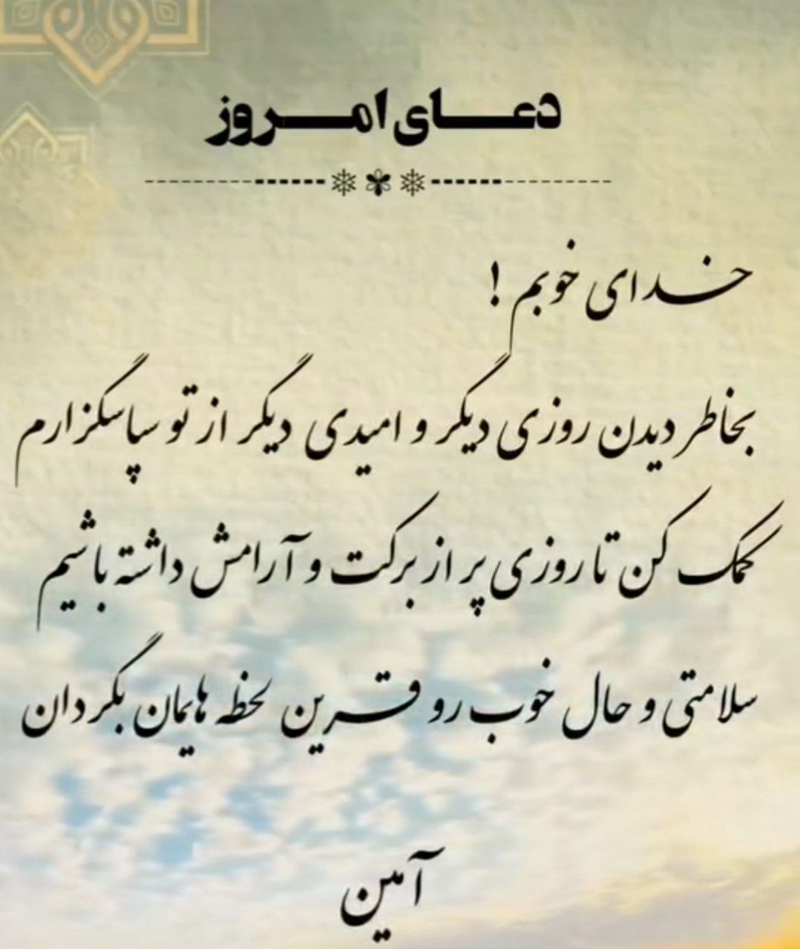 دعای امروز
خدای خوبم !
بخاطر دیدن روزی دیگر و امیدی دیگر از تو سپاسگزارم
کمک کن تا روزی پر از برکت و آرامش داشته باشیم
سلامتی و حال خوب رو قرین لحظه هایمان بگردان
آمین